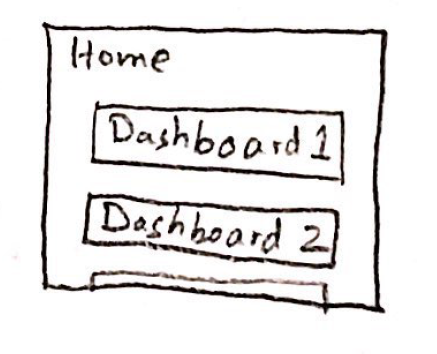 Home
Dashboard 1
Dashboard 2